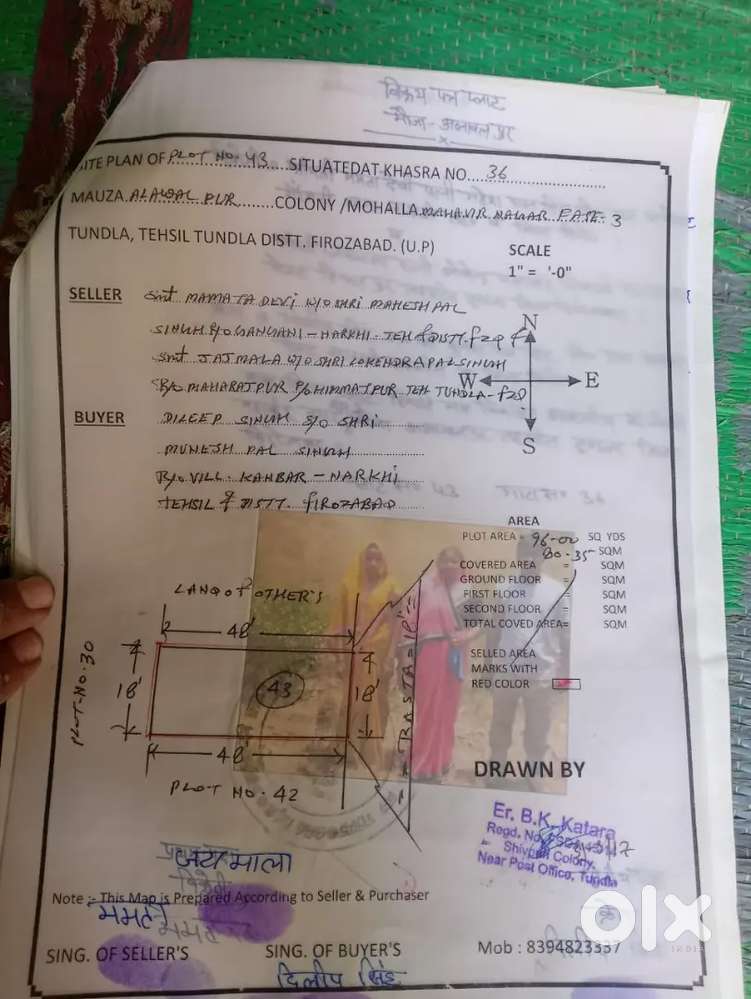 विक्रय पत्र प्लाट
मौजा - अलावलपुर
SITE PLAN OF PLOT NO. 43 SITUATEDAT KHASRA NO. 36
MAUZA ALAWAL PUR COLONY /MOHALLA MAHAVIR NAGAR FASE-3
TUNDLA, TEHSIL TUNDLA DISTT. FIROZABAD. (U.P)
SCALE
1" = '-0"
SELLER Smt MAMATA DEVI W/O SHRI MAHESH PAL
SINGH R/O GANGANI - NARKHI. TEH & DISTT. FZD &
Smt JAIMALA W/O SHRI LOKENDRA PAL SINGH
R/O MAHARAJPUR P/O HIMMATPUR TEH TUNDLA - FZD
N
W E
S
BUYER DILEEP SINGH S/O SHRI
MUNESH PAL SINGH
R/O VILL. KANBAR - NARKHI
TEHSIL & DISTT. FIROZABAD
AREA
PLOT AREA = 96-00 SQ YDS
80-35 SQM
COVERED AREA = SQM
GROUND FLOOR = SQM
FIRST FLOOR = SQM
SECOND FLOOR = SQM
TOTAL COVED AREA= SQM
SELLED AREA
MARKS WITH
RED COLOR
LAND OF OTHER'S
48'
PLOT-NO:30
18'
43
18'
RASTA 18'
48'
PLOT NO. 42
DRAWN BY
Er. B.K. Katara
Regd. No.
Shivpuri Colony,
Near Post Office, Tundla
जयमाला
Note :- This Map is Prepared According to Seller & Purchaser
ममता
SING. OF SELLER'S SING. OF BUYER'S Mob : 8394823337
दिलीप सिंह
olx
INDIA